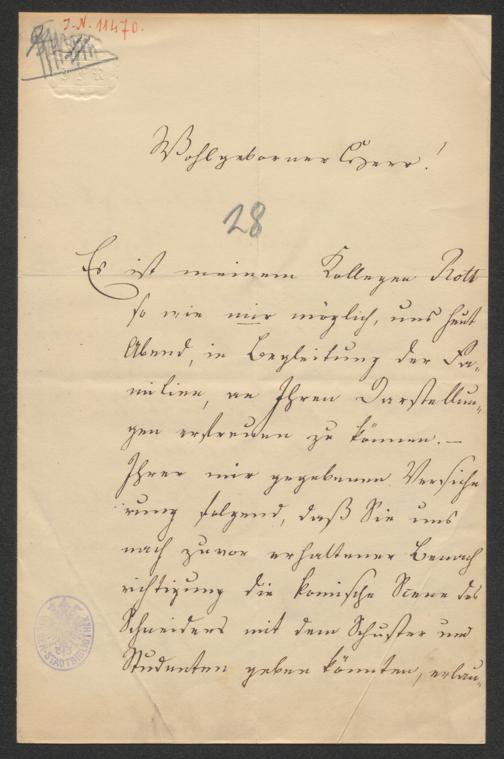 J.N. 11470.
Wohlgeborner Herr!
28
Es ist meinem Kollegen Rott
so wie mir möglich, uns heut
Abend, in Begleitung der Fa-
milien, an Ihren Darstellun-
gen erfreuen zu können. —
Ihrer mir gegebenen Versiche
rung folgend, daß Sie uns
nach zuvor erhaltener Benach
richtigung die komische Scene des
Schneiders mit dem Schuster und
Studenten geben könnten, erlau-